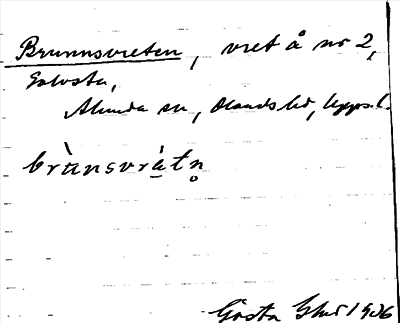 Brunnsvreten, vret å nr 2,
Golvsta,
Alunda sn, Olands hd, Upps. l.
brùnsvrètn̥
Gösta 1936